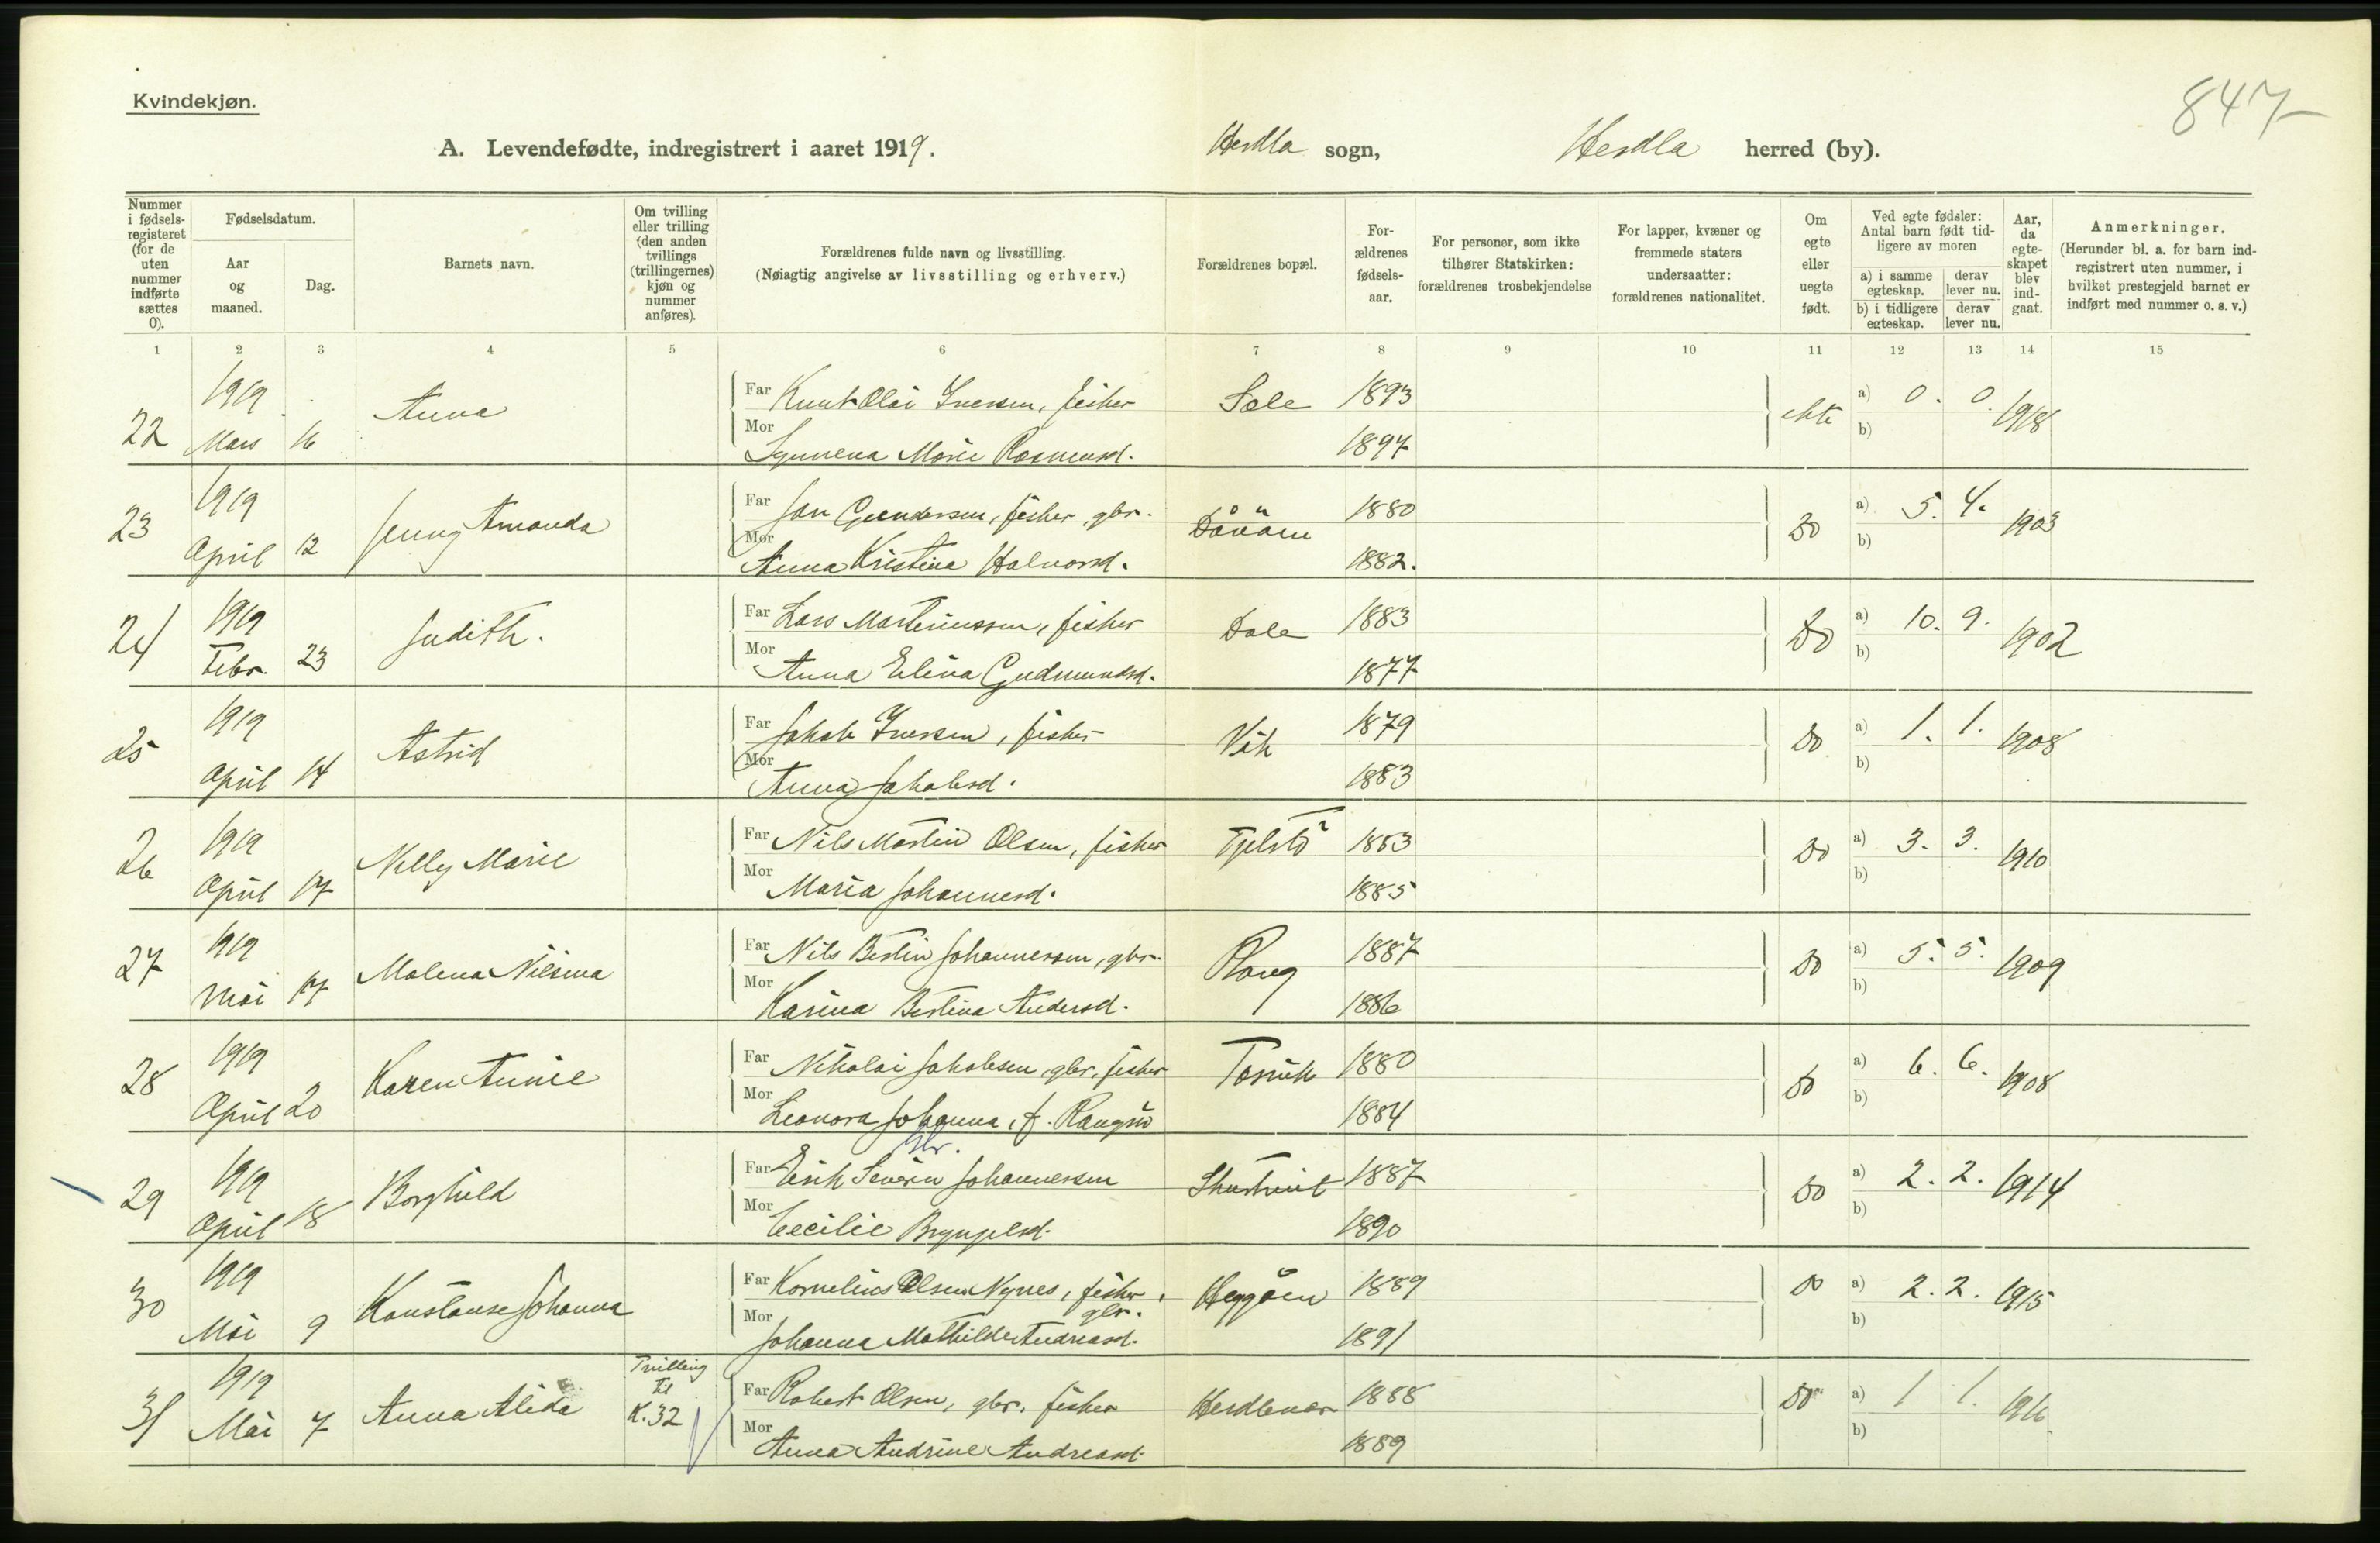 847
Kvindekjøn.
A. Levendefødte, indregistrert i aaret 1919. Herdla sogn, Herdla herred (by).
Nummer i fødsels-registeret (for de uten nummer indførte sættes 0).
Fødselsdatum.
Aar og maaned.
Dag.
Barnets navn.
Om tvilling eller trilling (den anden tvillings (trillingernes) kjøn og nummer anføres).
Forældrenes fulde navn og livsstilling.
(Nøiagtig angivelse av livsstilling og erhverv.)
Forældrenes bopæl.
For-ældrenes fødsels-aar.
For personer, som ikke tilhører Statskirken: forældrenes trosbekjendelse
For lapper, kvæner og fremmede staters undersaatter: forældrenes nationalitet.
Om egte eller uegte født.
Ved egte fødsler: Antal barn født tid-ligere av moren
a) i samme egteskap.
derav lever nu.
b) i tidligere egteskap.
derav lever nu.
Aar, da egte-skapet blev ind-gaat.
Anmerkninger.
(Herunder bl. a. for barn ind-registrert uten nummer, i hvilket prestegjeld barnet er indført med nummer o. s. v.)
1 2 3 4 5 6 7 8 9 10 11 12 13 14 15
22 1919 Mars 16 Anna
Far Knut Olai Iversen, fisker Sæle 1893 ekte a) 0. 0. 1918
Mor Synnena Marie Rasmusd. 1897 b)
23 1919 April 12 Jenny Amanda
Far Jan Gundersen, fisker, gbr. 1880 Do a) 5. 4. 1903
Mor Anna Kristina Halvorsd. 1882. b)
24 1919 Febr. 23 Judith.
Far Lars Martinussen, fisker Dale 1883 Do a) 10. 9. 1902
Mor Anna Elina Gudmundsd. 1877 b)
25 1919 April 14 Astrid
Far Jakob Iversen, fisker Vik 1879 Do a) 1. 1. 1908
Mor Anna Jakobsd. 1883 b)
26 1919 April 17 Nelly Marie
Far Nils Martin Olsen, fisker Tjelstø 1883 Do a) 3. 3. 1910
Mor Maria Johannesd. 1885 b)
27 1919 Mai 17 Malena Nilsina
Far Nils Bertin Johannessen, gbr. Rong 1887 Do a) 5. 5. 1909
Mor Karina Bertina Andersd. 1886 b)
28 1919 April 20 Karen Annie
Far Nikolai Jakobsen, gbr, fisker Torsvik 1880 Do a) 6. 6. 1908
Mor Leonora Johanna, f. 1884 b)
29 1919 April 18 Borghild
gbr.
Far Erik Severin Johannessen 1887 Do a) 2. 2. 1914
Mor Cecilie Bryngelsd. 1890 b)
30 1919 Mai 9 Konstanse Johanna
Far Kornelius Olsen Nynes, fisker, gbr. Heggøen 1889 Do a) 2. 2. 1915
Mor Johanna Mathilde Andreasd. 1891 b)
31 1919 Mai 7 Anna Alida Tvilling til K. 32
Far Robert Olsen, gbr. fisker Herdlevær 1888 Do a) 1 1. 1916
Mor Anna Andrine Andreasd. 1889 b)